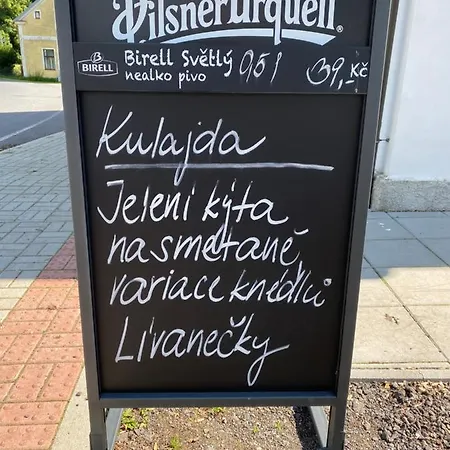 PilsnerUrquell®
B
BIRELL
Birell Světlý 0,5 l 39,- Kč
nealko pivo
Kulajda
Jelení kýta
na smetaně,
variace knedlíků
Lívanečky